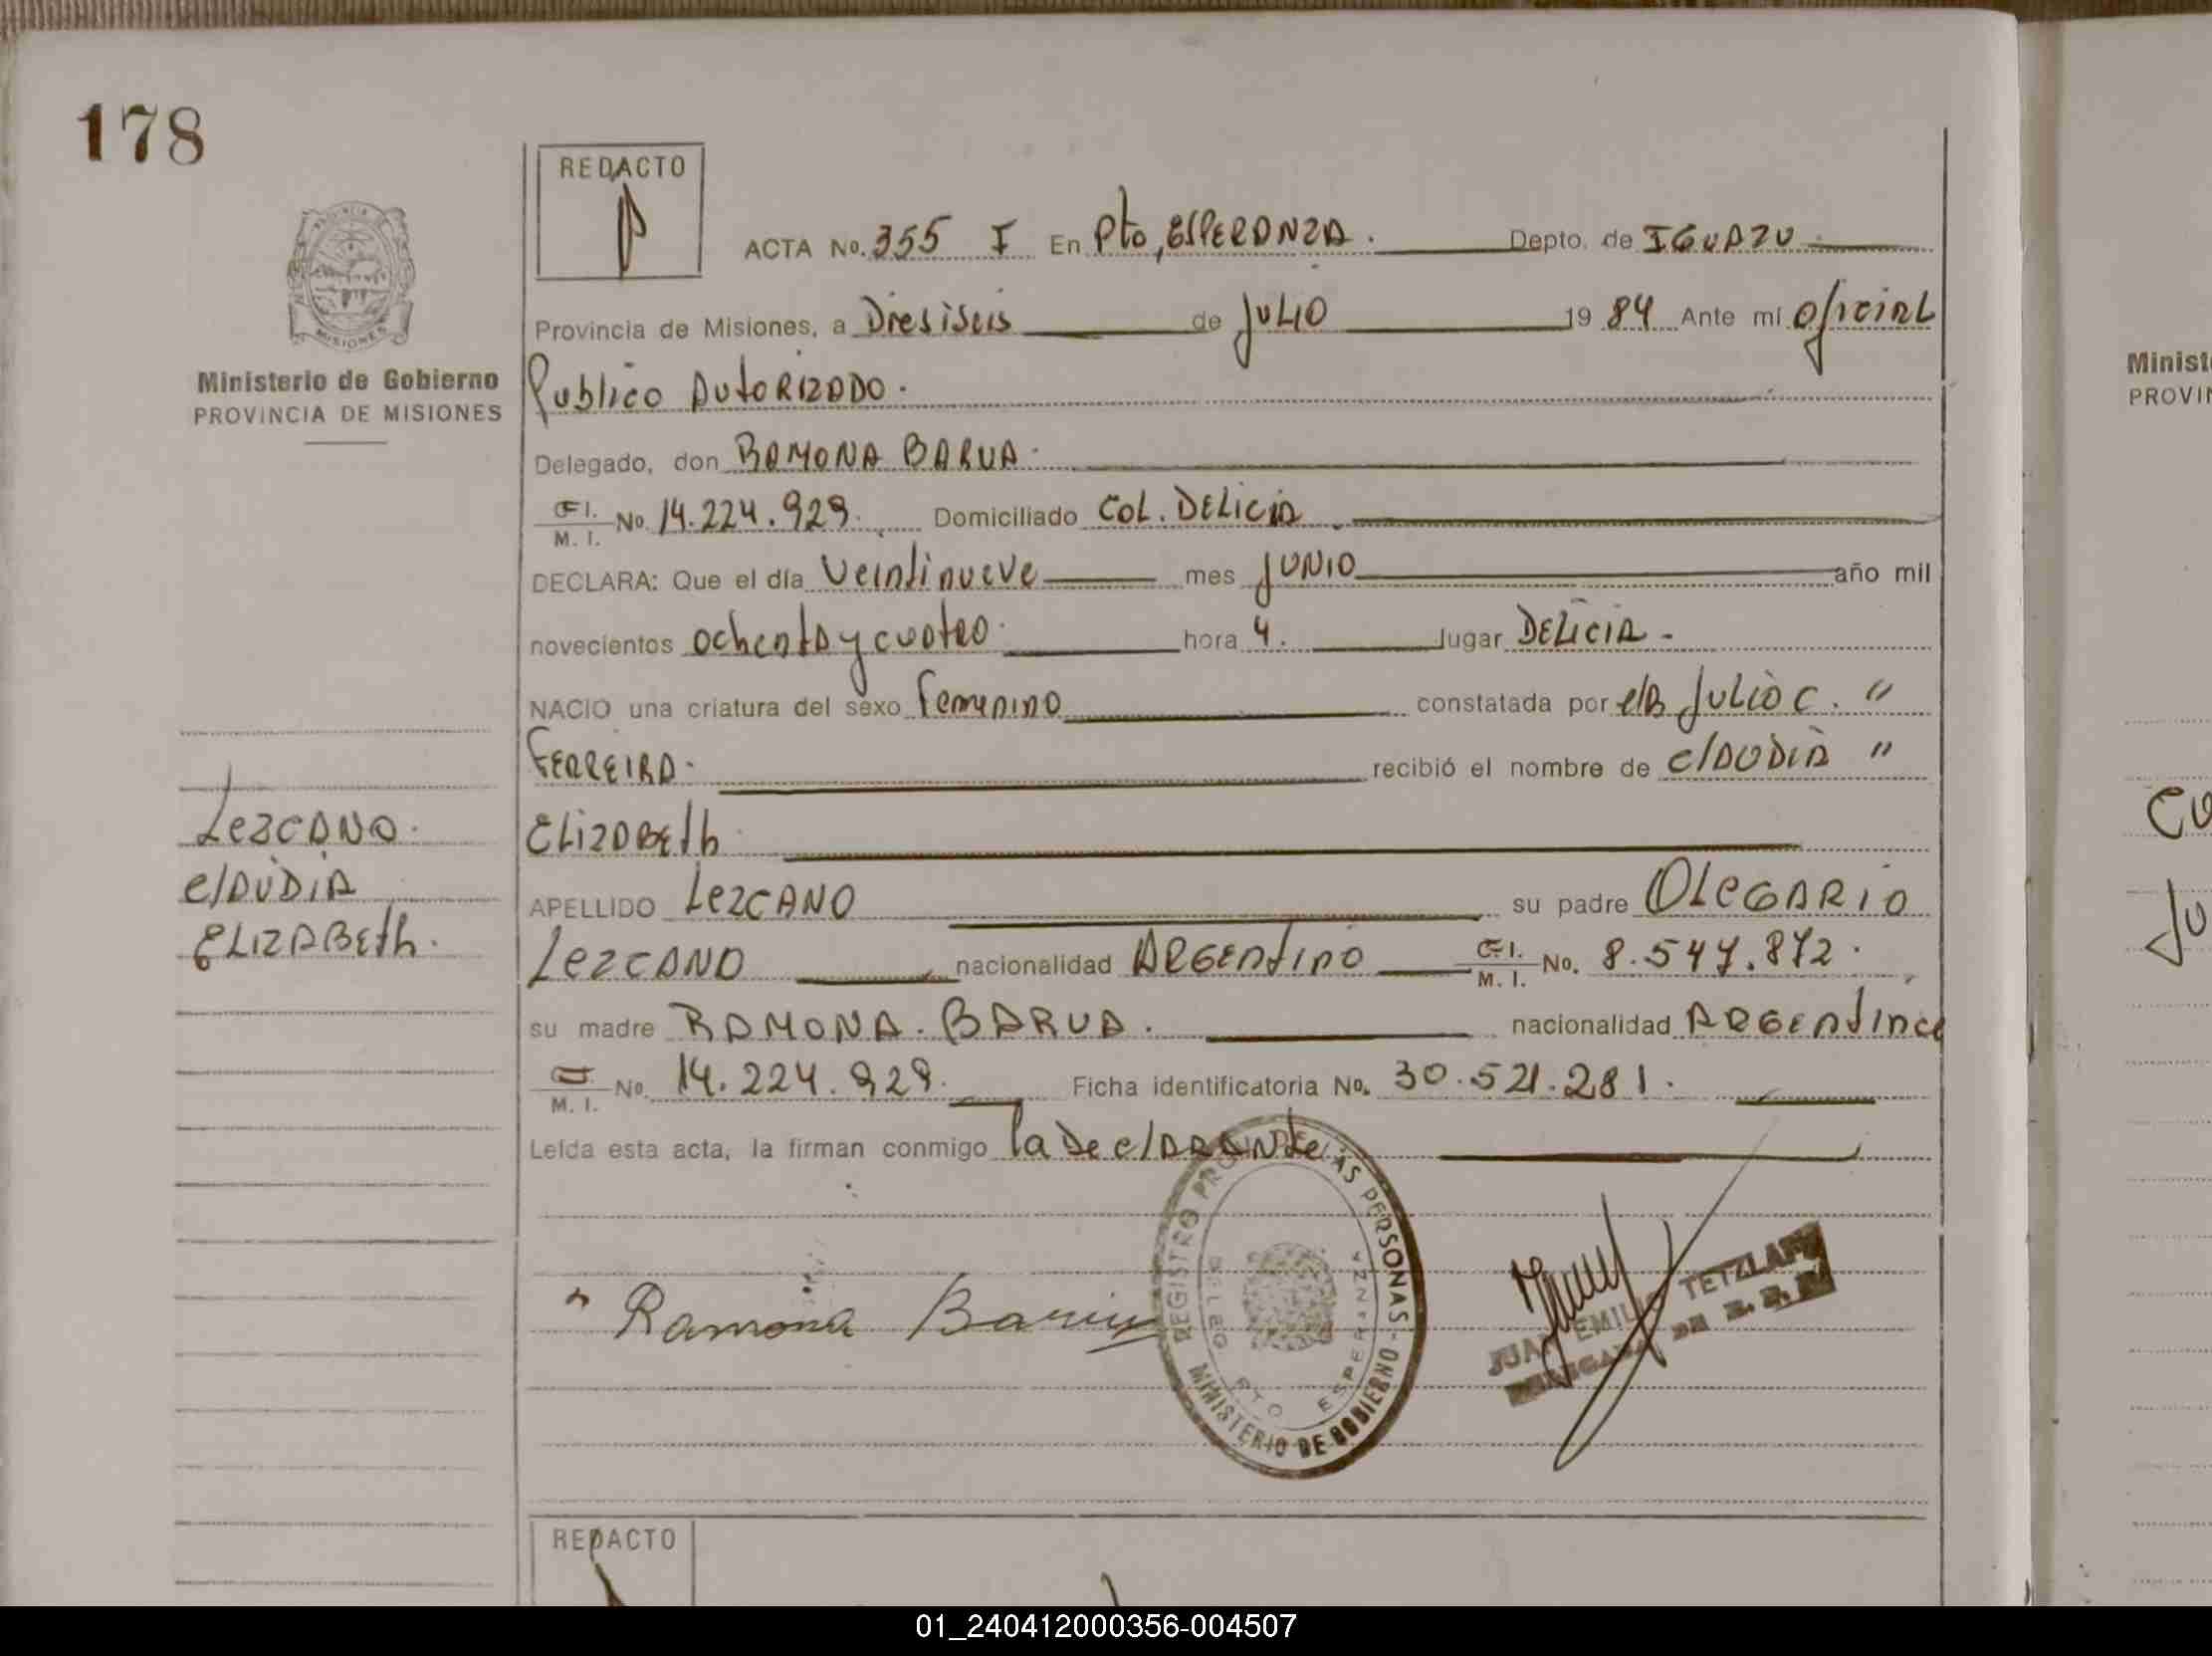 178
REDACTO
ACTA No. 355 I En Pto, ESPERANZA. Depto. de IGUAZU
Provincia de Misiones, a Diesiseis de JULIO 19 84 Ante mí oficial
Publico AutoRIZADO.
Delegado, don RAMONA BARUA.
C.I. M. I. No. 14.224.929. Domiciliado COL. DELICIA.
DECLARA: Que el día Veintinueve mes JUNIO año mil
novecientos ochenta y cuatro. hora 4. lugar DELICIA -
NACIO una criatura del sexo femenino constatada por JULIO C. "
FERREIRA. recibió el nombre de clAUDIA "
ELIZABEth
APELLIDO LEZCANO su padre OLEGARIO
LEZCANO nacionalidad ARGENtino C.I. M. I. No. 8.547.872.
su madre RAMONA. BARUA. nacionalidad ARGENtina
M. I. No. 14.224.929. Ficha identificatoria No. 30.521.281.
Leída esta acta, la firman conmigo la DeclARANte
Ramona Barua
REGISTRO PROV. DE LAS PERSONAS - MINISTERIO DE GOBIERNO
PTO ESPERANZA
JUAN EMILIO TETZLAFF
REDACTO
PROVINCIA DE MISIONES
Ministerio de Gobierno
PROVINCIA DE MISIONES
LEZCANO.
clAUDIA
ELIZABEth.
Minist
PROVIN
CU
JU
01_240412000356-004507